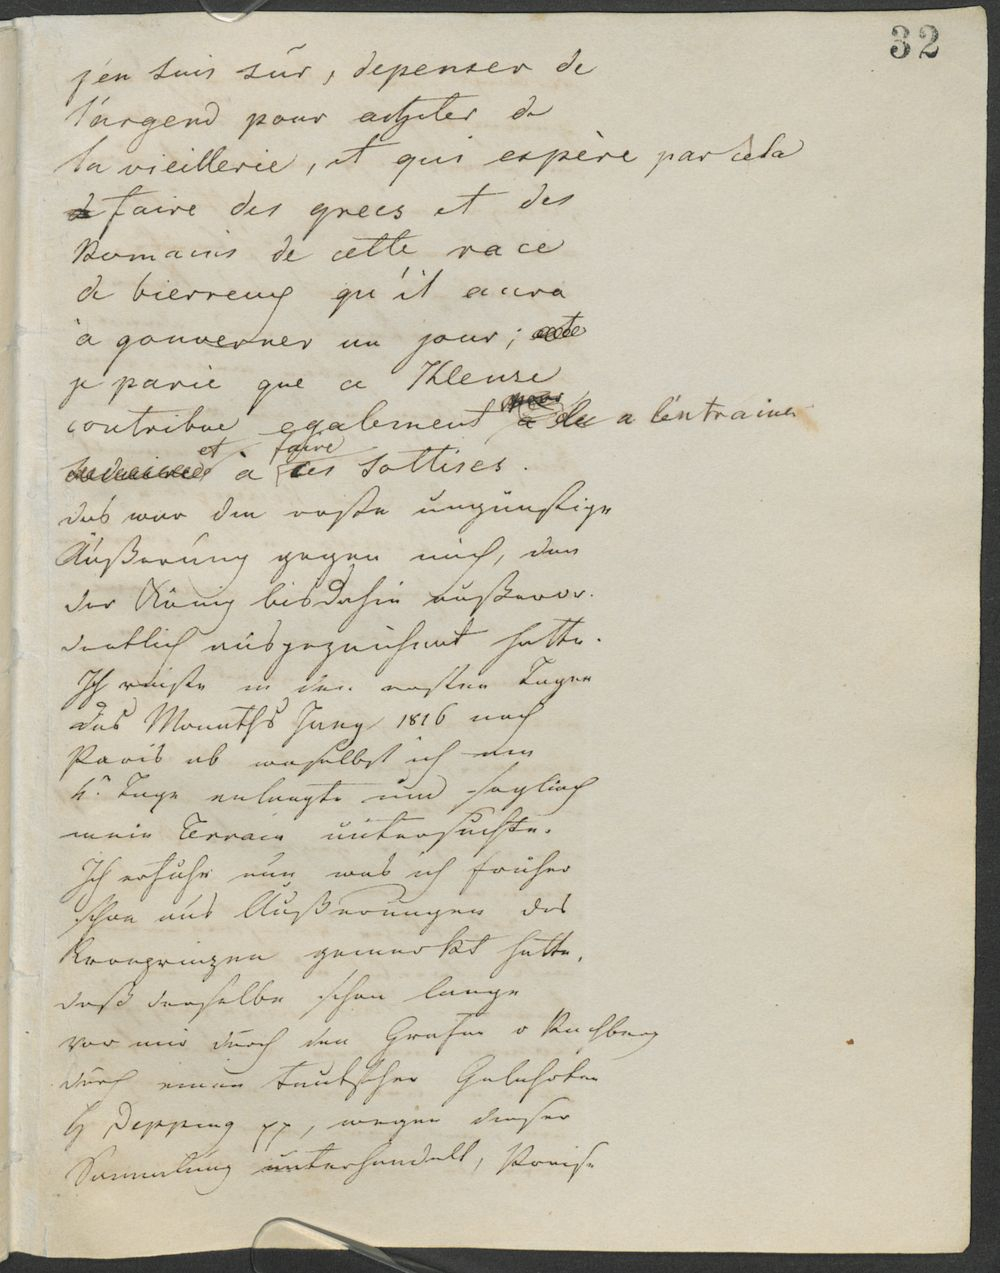 32
j'en suis sûr, depenser de
l'argend pour acheter de
la vieillerie, et qui espère par cela
de faire des grecs et des
Romains de cette race
de bierreux qu'il aura
à gouverner un jour;
je parie que ce Klenze
contribue egalement a l'entrainer
et à faire ces sottises.
das war die erste ungünstige
Äußerung gegen mich, den
der König bis dahin außeror-
dentlich ausgezeichnet hatte.
Ich reiste in den ersten Tagen
des Monaths Juny 1816 nach
Paris ab woselbst ich am
Tage anlangte und sogleich
mein Terrain untersuchte.
Ich erfuhr nun was ich früher
schon aus Äußerungen des
Kronprinzen gemerkt hatte,
daß derselbe schon lange
vor mir durch den Grafen v Rechberg
durch einen teutschen Gelehrten
H Depping pp, wegen dieser
Sammlung unterhandelt, Preise